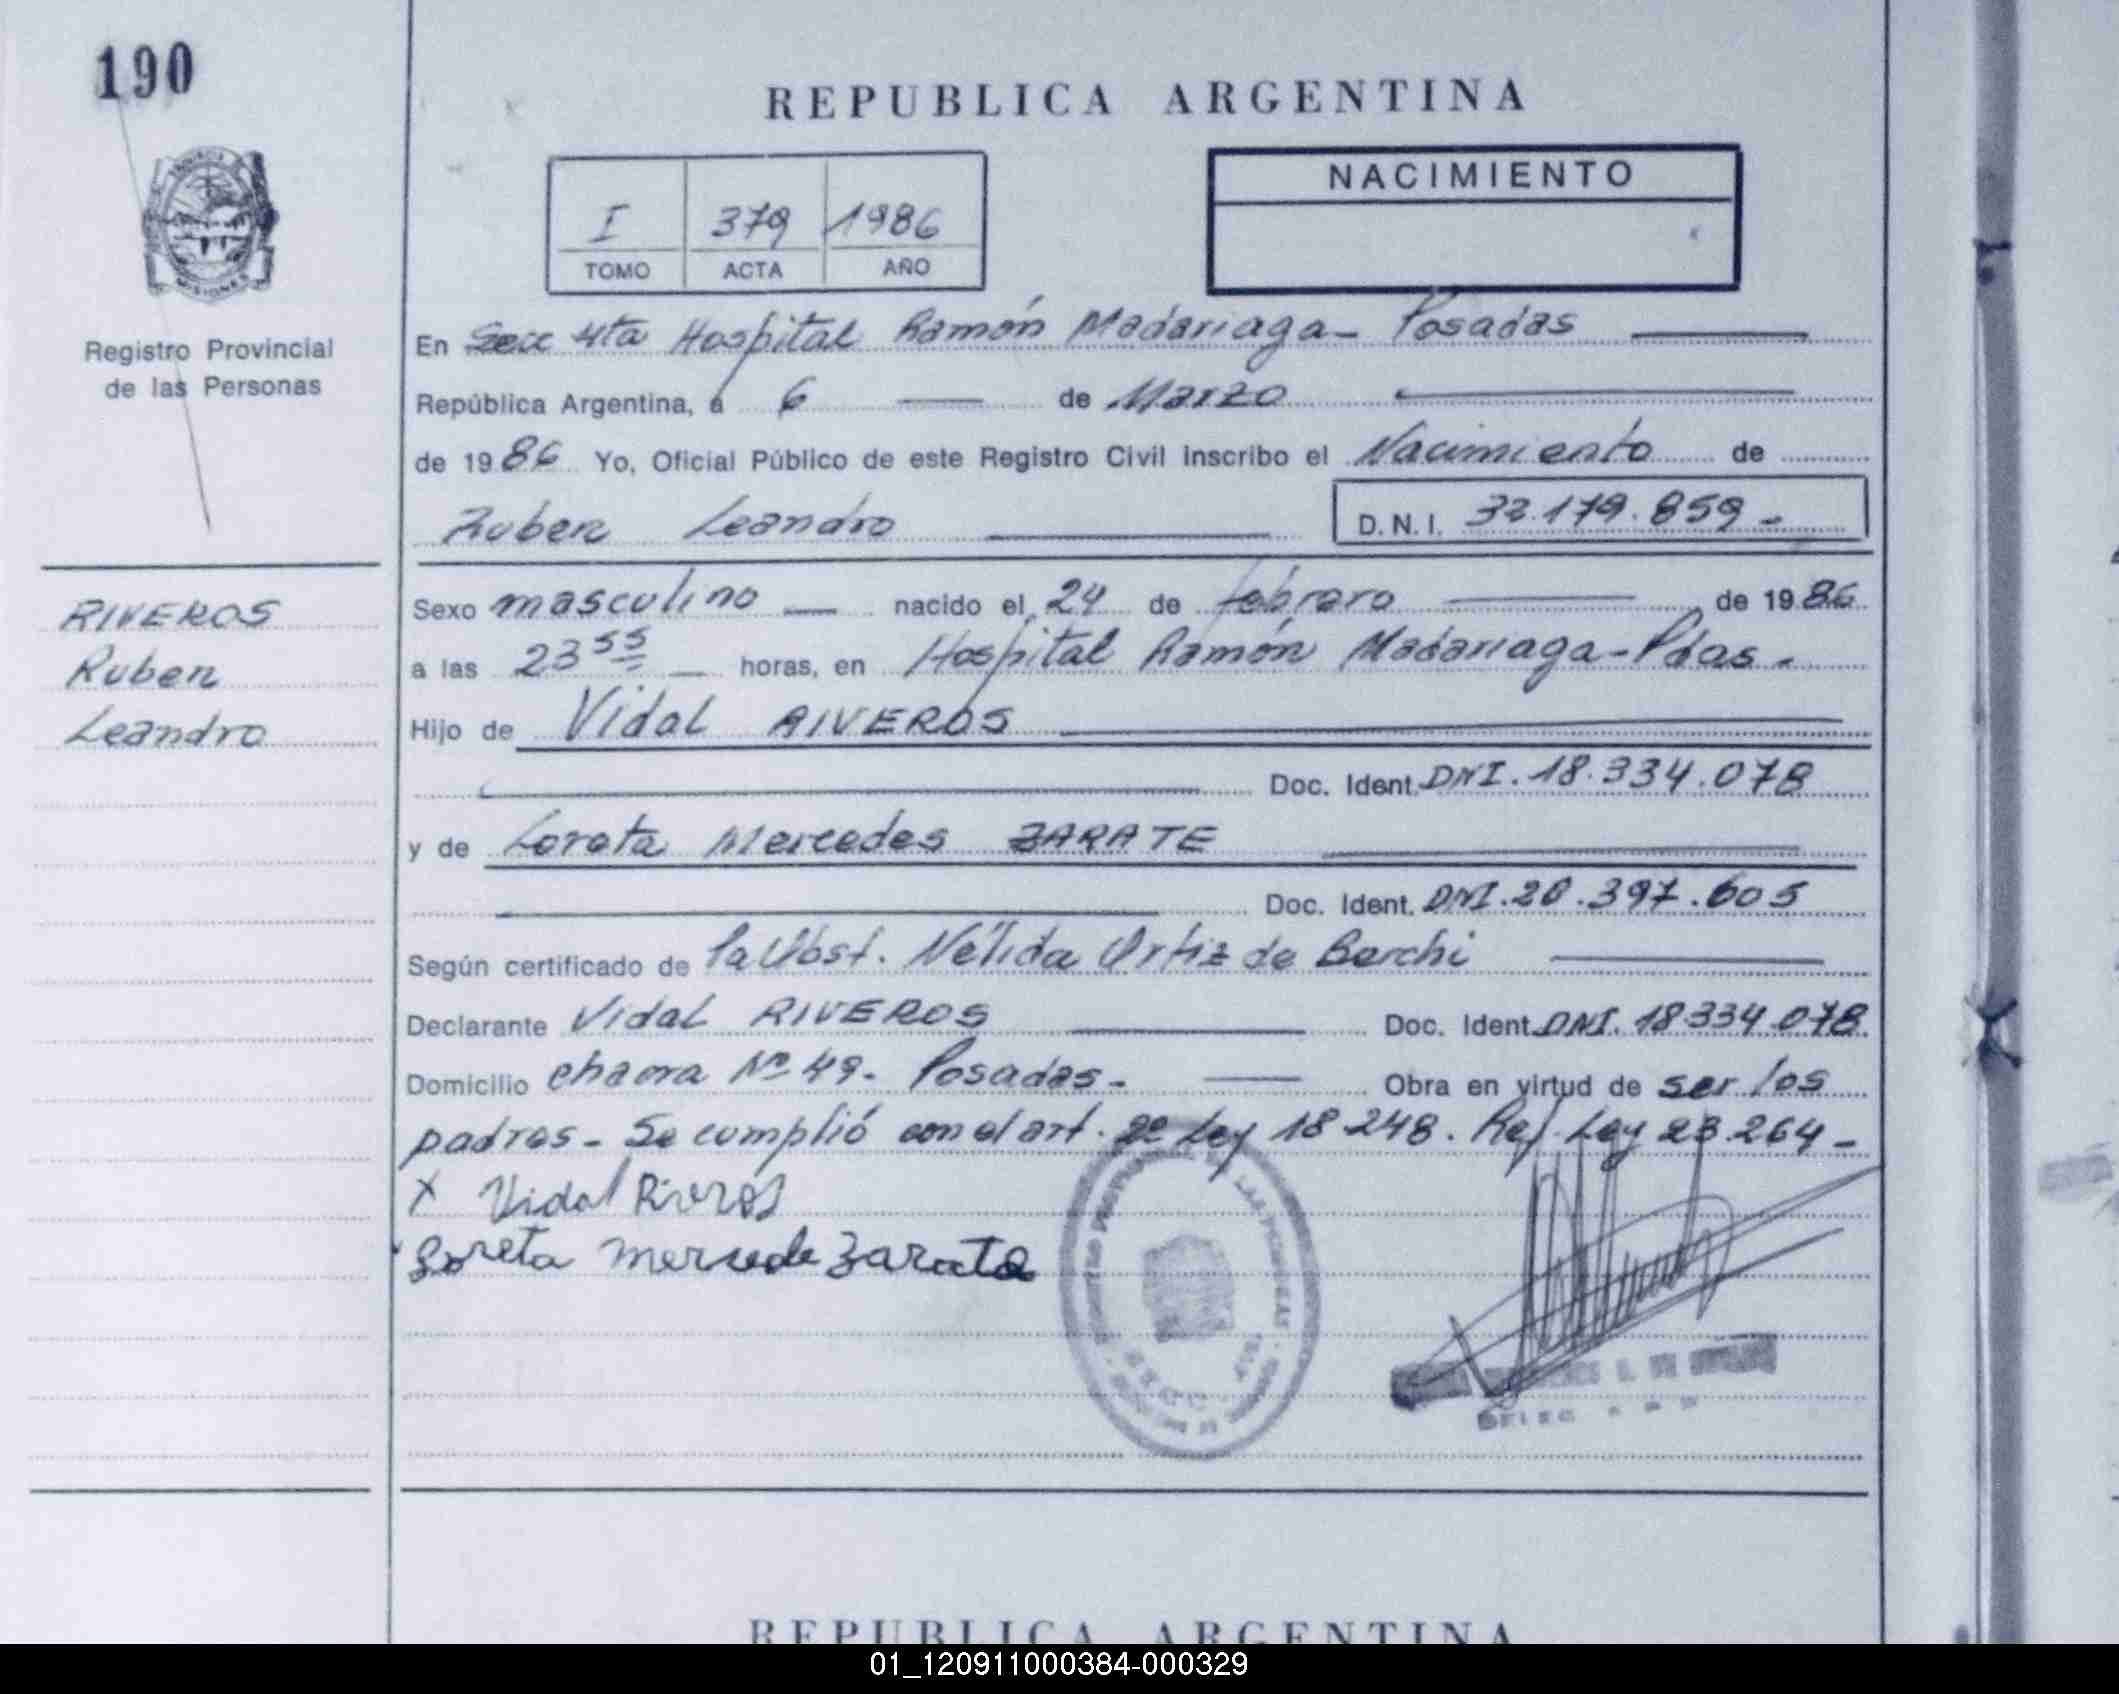 190
REPUBLICA ARGENTINA
I 379 1986
TOMO ACTA AÑO
NACIMIENTO
MISIONES
Registro Provincial
de las Personas
En Secc 4ta Hospital Ramón Madariaga - Posadas
República Argentina, a 6 de Marzo
de 1986 Yo, Oficial Público de este Registro Civil inscribo el Nacimiento de
Ruben Leandro D.N.I. 32.179.859.-
RIVEROS
Ruben
Leandro
Sexo masculino nacido el 24 de febrero de 1986
a las 23 55 horas, en Hospital Ramón Madariaga - Pdas.
Hijo de Vidal RIVEROS
Doc. Ident. DNI. 18.334.078
y de Loreta Mercedes ZARATE
Doc. Ident. DNI. 20.397.605
Según certificado de la Obst. Nélida Ortiz de Berchi
Declarante Vidal RIVEROS Doc. Ident. DNI. 18.334.078
Domicilio chacra Nº 49. Posadas.- Obra en virtud de ser los
padres - Se cumplió con el art. 2º Ley 18.248. Ref. Ley 23.264 -
X Vidal Riveros
Loreta Mercede Zarate
REPUBLICA ARGENTINA
01_120911000384-000329